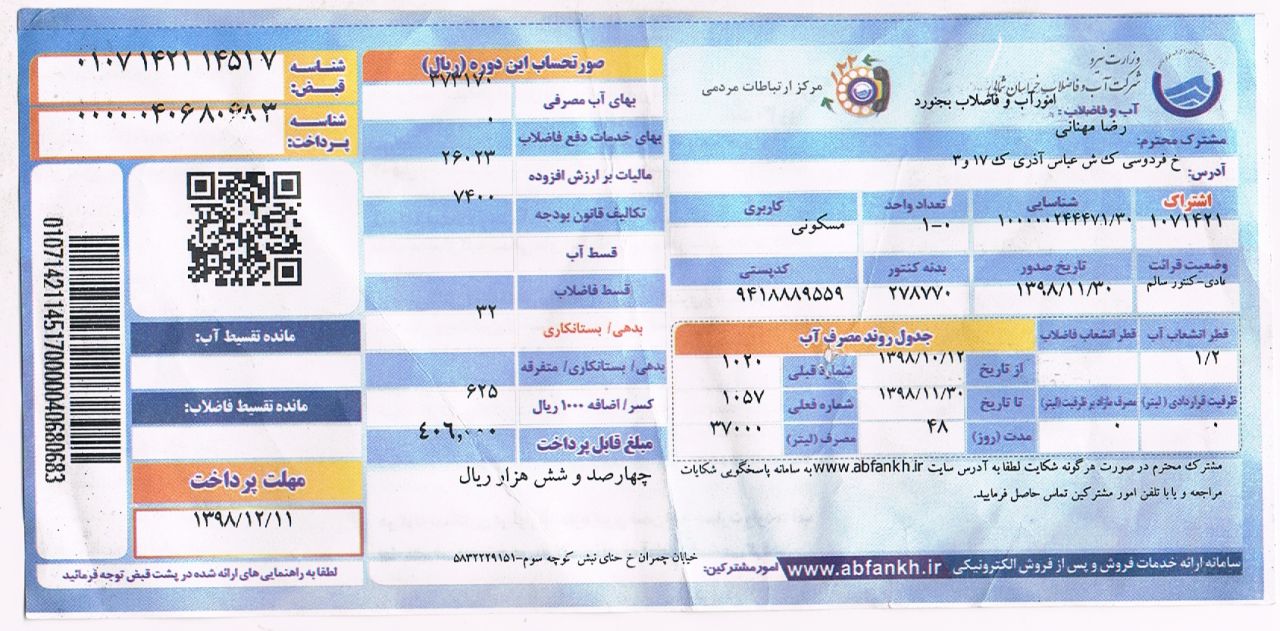 وزارت نیرو
شرکت آب و فاضلاب خراسان شمالی
آب و فاضلاب : امور آب و فاضلاب بجنورد
۱۲۲
مرکز ارتباطات مردمی
مشترک محترم: رضا مهنانی
آدرس: خ فردوسی ک ش عباس آذری ک ۱۷ و ۳
اشتراک شناسایی تعداد واحد کاربری
۱۰۷۱۴۲۱ ۱۰۰۰۰۰۰۲۴۴۴۷۱/۳۰ ۱-۰ مسکونی
وضعیت قرائت تاریخ صدور بدنه کنتور کدپستی
عادی-کنتور سالم ۱۳۹۸/۱۱/۳۰ ۲۷۸۷۷۰ ۹۴۱۸۸۸۹۵۵۹
قطر انشعاب آب قطر انشعاب فاضلاب جدول روند مصرف آب
۱/۲ از تاریخ ۱۳۹۸/۱۰/۱۲ شماره قبلی ۱۰۲۰
ظرفیت قراردادی (لیتر) مصرف مازاد بر ظرفیت (لیتر) تا تاریخ ۱۳۹۸/۱۱/۳۰ شماره فعلی ۱۰۵۷
۰ ۰ مدت (روز) ۴۸ مصرف (لیتر) ۳۷۰۰۰
مشترک محترم در صورت هرگونه شکایت لطفا به آدرس سایت www.abfankh.ir به سامانه پاسخگویی شکایات
مراجعه و یا با تلفن امور مشترکین تماس حاصل فرمایید.
سامانه ارائه خدمات فروش و پس از فروش الکترونیکی www.abfankh.ir
امور مشترکین: خیابان چمران خ حنای نبش کوچه سوم-۵۸۳۲۲۲۹۱۵۱
صورتحساب این دوره (ریال)
بهای آب مصرفی ۳۷۳۱۷۰
بهای خدمات دفع فاضلاب ۰
مالیات بر ارزش افزوده ۲۶۰۲۳
تکالیف قانون بودجه ۷۴۰۰
قسط آب
قسط فاضلاب
بدهی/ بستانکاری ۳۲
بدهی/ بستانکاری/ متفرقه
کسر/ اضافه ۱۰۰۰ ریال ۶۲۵
مبلغ قابل پرداخت ۴۰۶,۰۰۰
چهارصد و شش هزار ریال
شناسه قبض: ۰۱۰۷۱۴۲۱۱۴۵۱۷
شناسه پرداخت: ۰۰۰۰۰۴۰۶۸۰۶۸۳
01071421145170000040680683
مانده تقسیط آب:
مانده تقسیط فاضلاب:
مهلت پرداخت
۱۳۹۸/۱۲/۱۱
لطفا به راهنمایی های ارائه شده در پشت قبض توجه فرمائید